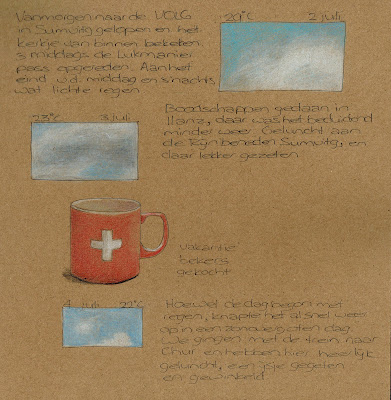 Vanmorgen naar de VOLG
in Sumvitg gelopen en het
kerkje van binnen bekeken
's middags de Lukmanier
pas opgereden. Aan het
eind v.d. middag en s'nachts
wat lichte regen
20°C 2 juli
Boodschappen gedaan in
Ilanz, daar was het beduidend
minder weer. Geluncht aan
de Rijn beneden Sumvitg, en
daar lekker gezeten
23°C 3 juli
vakantie
bekers
gekocht
4 juli 22°C
Hoewel de dag begon met
regen, knapte het al snel weer
op in een zonovergoten dag.
We gingen met de trein naar
Chur en hebben hier heerlijk
geluncht, een ijsje gegeten
en gewinkeld